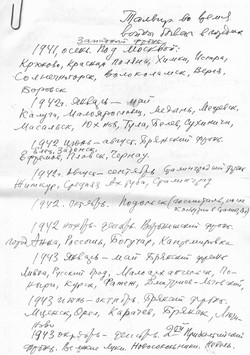 во время
войны
Западный фронт
1941, осень. Под Москвой.
Крюково, Красная Поляна, Химки, Истра,
Солнечногорск, Волоколамск, Верея,
Боровск
1942г. Январь - май
Калуга, Малоярославец, Медынь, Мещовск,
Масальск, Юхнов, Тула, Белев, Сухиничи
1942 июнь - август. Брянский фронт.
Елец, Задонск,
Ефремов,
1942, август - сентябрь
Житкур, Средняя Ахтуба, Сталинград
1942. Октябрь. Подольск
1942 ноябрь - декабрь Воронежский фронт
Анна, Россошь, Богучар, Кантемировка
1943 Январь - май Брянский фронт.
Ливны, Русский Брод, Малоархангельск, По-
ныри, Курск, Фатеж, Дмитровск-
1943 июнь - октябрь. Брянский фронт.
Мценск, Орел, Карачев, Брянск,
1943 октябрь - декабрь. 2ой Прибалтийский
фронт. Великие Луки, Новосокольники, Невель.